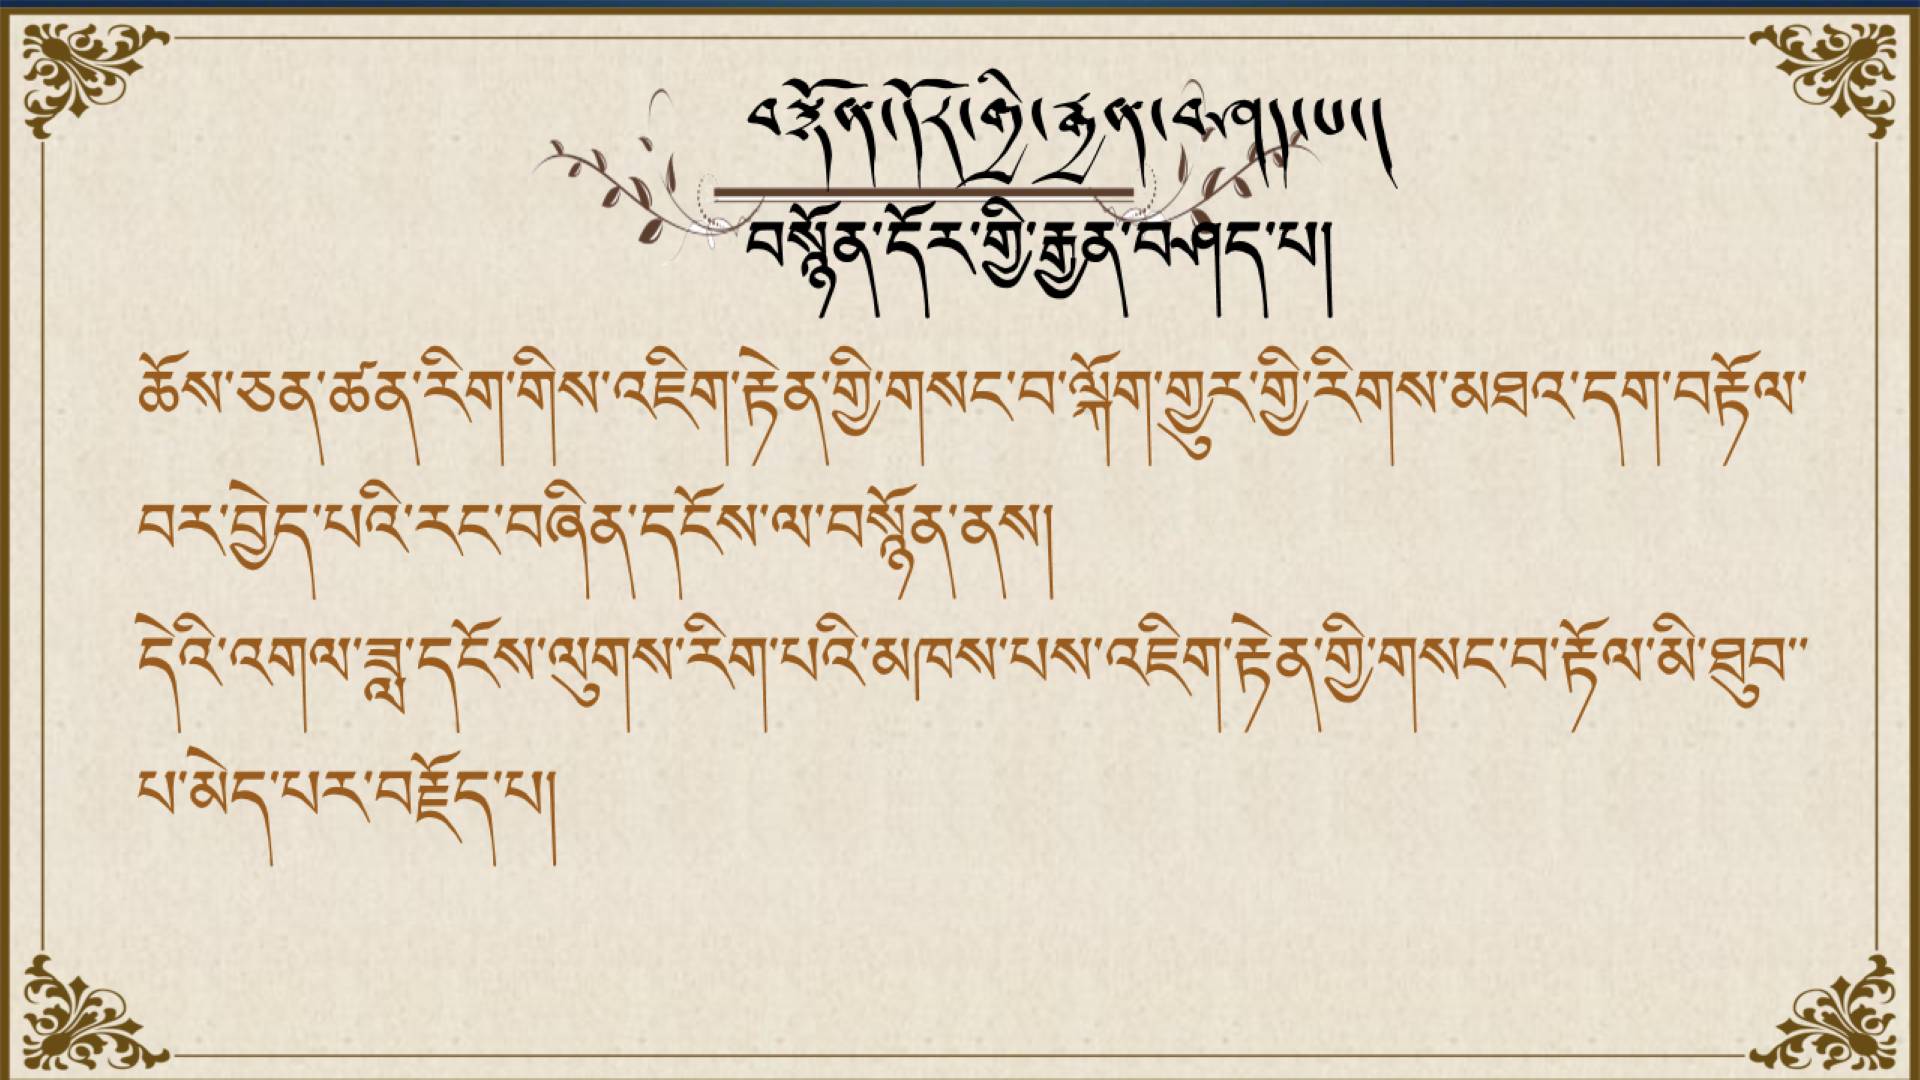 བརྗོད་དོར་གྱི་རྒྱན་བཤད་པ།
བསྙོན་དོར་གྱི་རྒྱན་བཤད་པ།
ཆོས་ཅན་ཚན་རིག་གིས་འཇིག་རྟེན་གྱི་གསང་བ་ལྐོག་གྱུར་གྱི་རིགས་མཐའ་དག་བརྟོལ་
བར་བྱེད་པའི་རང་བཞིན་དངོས་ལ་བསྙོན་ནས།
དེའི་འགལ་ཟླ་དངོས་ལུགས་རིག་པའི་མཁས་པས་འཇིག་རྟེན་གྱི་གསང་བ་རྟོལ་མི་ཐུབ་་
པ་མེད་པར་བརྗོད་པ།